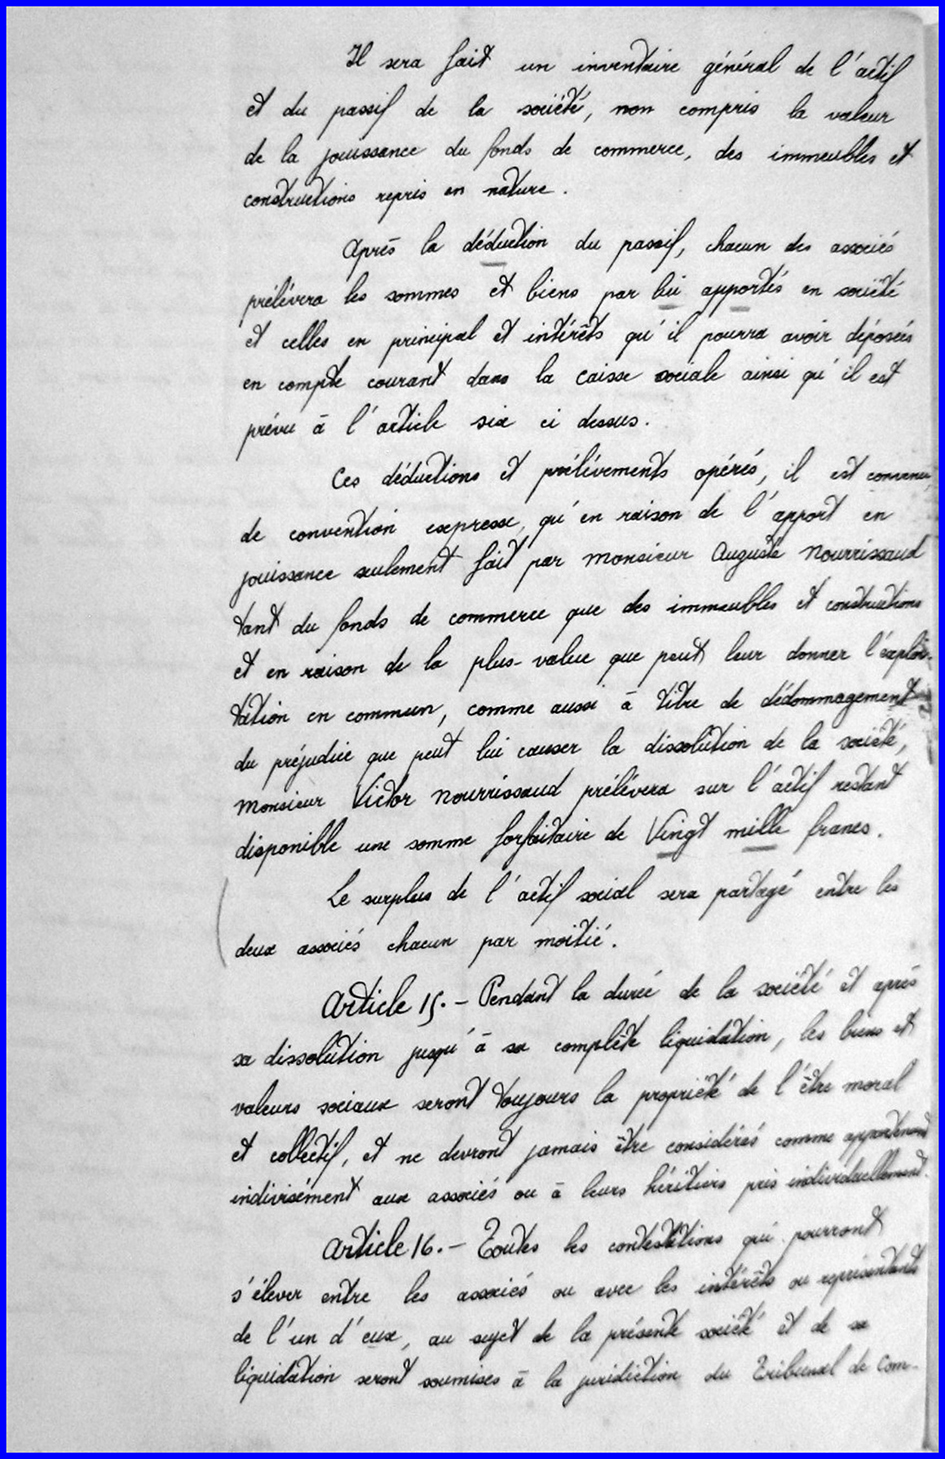 Il sera fait un inventaire général de l'actif
et du passif de la société, non compris la valeur
de la jouissance du fonds de commerce, des immeubles et
constructions repris en nature.
Après la déduction du passif, chacun des associés
prélèvera les sommes et biens par lui apportés en société
et celles en principal et intérêts qu'il pourra avoir déposées
en compte courant dans la caisse sociale ainsi qu'il est
prévu à l'article six ci dessus.
Ces déductions et prélèvements opérés, il est convenu,
de convention expresse, qu'en raison de l'apport en
jouissance seulement fait par monsieur Auguste Nourrissaud
tant du fonds de commerce que des immeubles et constructions
et en raison de la plus-value que peut leur donner l'exploi-
tation en commun, comme aussi à titre de dédommagement
du préjudice que peut lui causer la dissolution de la société,
monsieur Victor Nourrissaud prélèvera sur l'actif restant
disponible une somme forfaitaire de Vingt mille francs.
Le surplus de l'actif social sera partagé entre les
deux associés chacun par moitié.
Article 15.- Pendant la durée de la société et après
sa dissolution jusqu'à sa complète liquidation, les biens et
valeurs sociaux seront toujours la propriété de l'être moral
et collectif, et ne devront jamais être considérés comme appartenant
indivisément aux associés ou à leurs héritiers pris individuellement.
Article 16.- Toutes les contestations qui pourront
s'élever entre les associés ou avec les intérêts ou représentants
de l'un d'eux, au sujet de la présente société et de sa
liquidation seront soumises à la juridiction du Tribunal de Com-